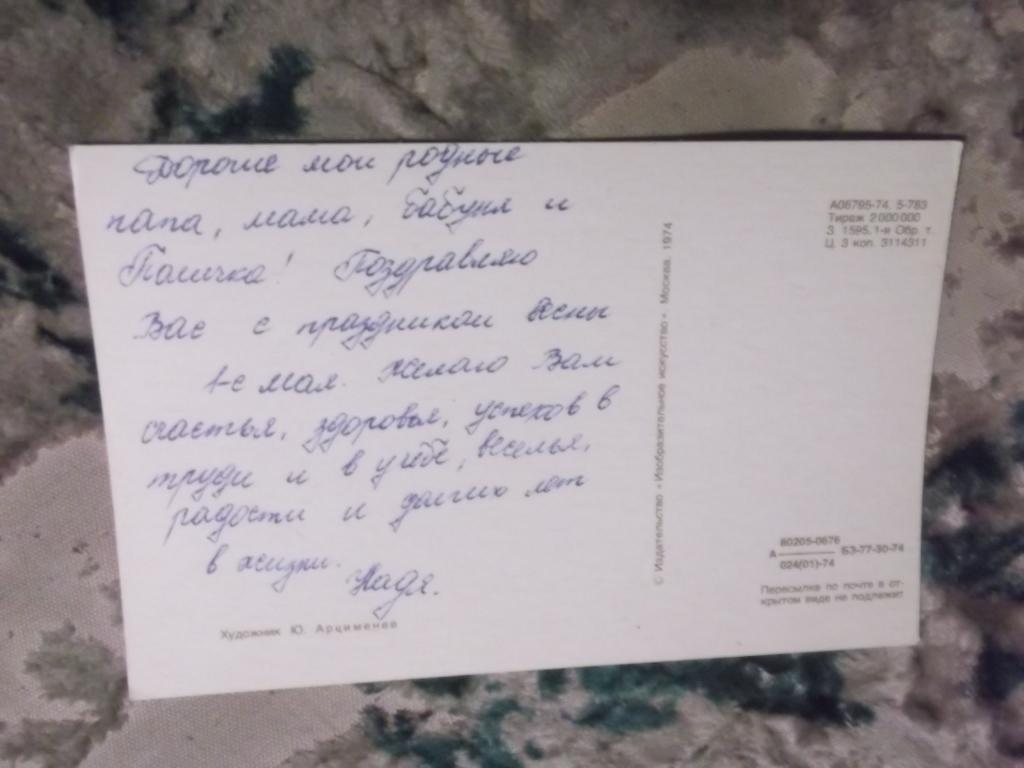 Дорогие мои родные
папа, мама, бабуня и
Поздравляю
Вас с праздником весны
1-е мая. Желаю Вам
счастья, здоровья, успехов в
труде и в учёбе, веселья,
радости и долгих лет
в жизни.
Надя.
Художник Ю. Арцименев
© Издательство «Изобразительное искусство». Москва. 1974
А06795-74. 5-783
Тираж 2000000
З. 1595. 1-я Обр. т.
Ц. 3 коп. 3114311
А 80205-0676 БЗ-77-30-74
024(01)-74
Пересылке по почте в от-
крытом виде не подлежит